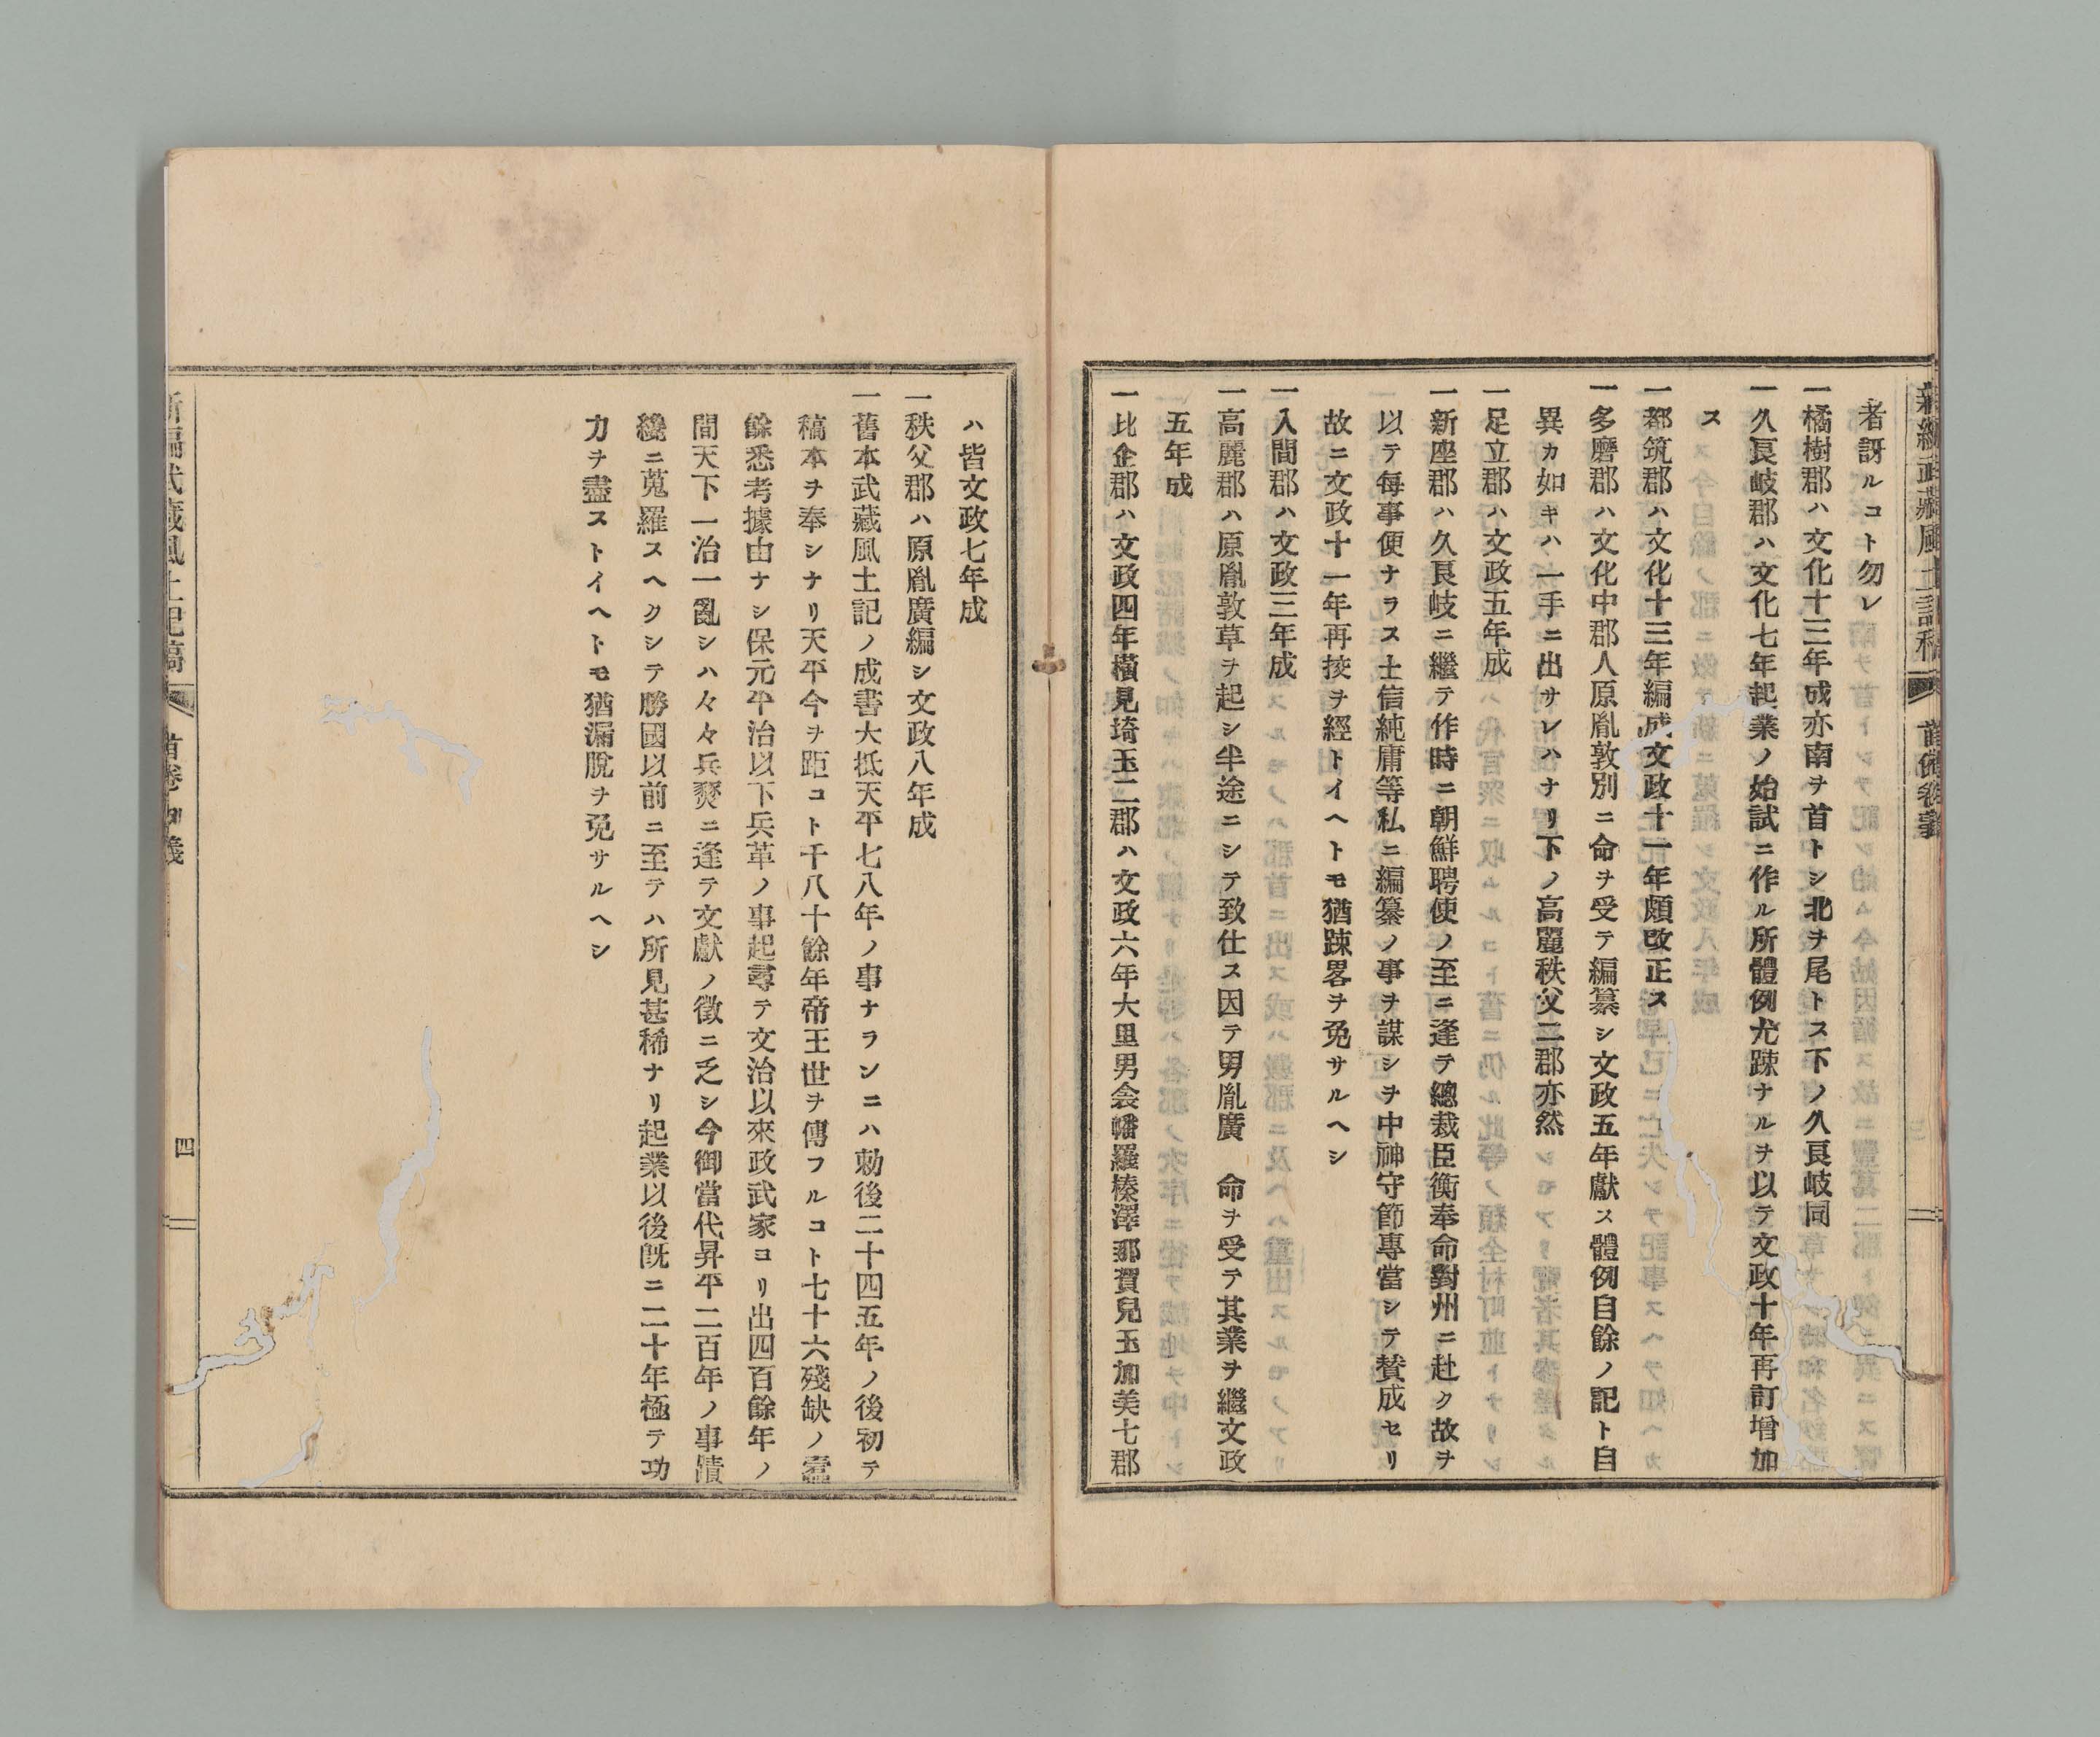 新編武藏風土記稿
首卷
者訝ルコト勿レ
一橘樹郡ハ文化十三年成亦南ヲ首トシ北ヲ尾トス下ノ久良岐同
一久良岐郡ハ文化七年起業ノ始試ニ作ル所體例尤踈ナルヲ以テ文政十年再訂增加
ス
一都筑郡ハ文化十三年編成文政十一年頗改正ス
一多磨郡ハ文化中郡人原胤敦別ニ命ヲ受テ編纂シ文政五年獻ス體例自餘ノ記ト自
異カ如キハ一手ニ出サレハナリ下ノ高麗秩父二郡亦然
一足立郡ハ文政五年成
一新座郡ハ久良岐ニ繼テ作時ニ朝鮮聘使ノ至ニ逢テ總裁臣衡奉命對州ニ赴ク故ヲ
以テ每事便ナラス士信純庸等私ニ編纂ノ事ヲ謀シヲ中神守節專當シテ賛成セリ
故ニ文政十一年再挍ヲ經トイヘトモ猶踈畧ヲ免サルヘシ
一入間郡ハ文政三年成
一高麗郡ハ原胤敦草ヲ起シ半途ニシテ致仕ス因テ男胤廣 命ヲ受テ其業ヲ繼文政
五年成
一比企郡ハ文政四年橫見埼玉二郡ハ文政六年大里男衾幡羅榛澤那賀兒玉加美七郡
ハ皆文政七年成
一秩父郡ハ原胤廣編シ文政八年成
一舊本武藏風土記ノ成書大抵天平七八年ノ事ナランニハ勅後二十四五年ノ後初テ
稿本ヲ奉シナリ天平今ヲ距コト千八十餘年帝王世ヲ傳フルコト七十六殘缺ノ
餘悉考據由ナシ保元平治以下兵革ノ事起尋テ文治以來政武家ヨリ出四百餘年ノ
間天下一治一亂シハ々々兵燹ニ逢テ文獻ノ徵ニ乏シ今御當代昇平二百年ノ事蹟
纔ニ蒐羅スヘクシテ勝國以前ニ至テハ所見甚稀ナリ起業以後旣ニ二十年極テ功
力ヲ盡ストイヘトモ猶漏脫ヲ免サルヘシ
新編武藏風土記稿
首卷
四